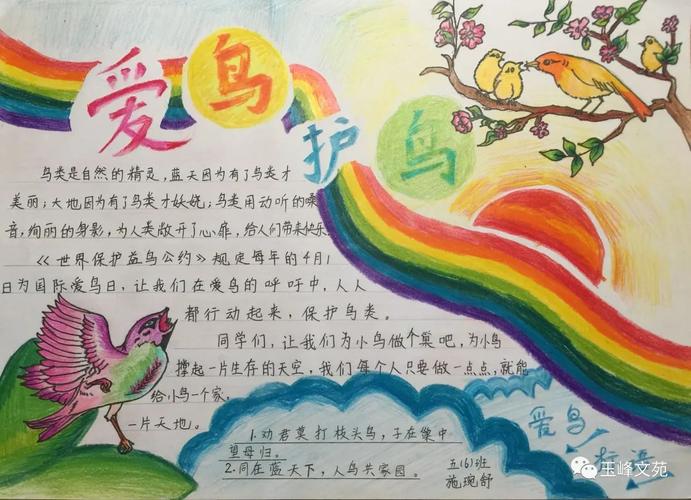 爱鸟
护鸟
鸟类是自然的精灵,蓝天因为有了鸟类才
美丽;大地因为有了鸟类才妖娆;鸟类用动听的嗓
音,绚丽的身影,为人类敞开了心扉,给人们带来快乐。
《世界保护益鸟公约》规定每年的4月1
日为国际爱鸟日,让我们在爱鸟的呼吁中,人人
都行动起来,保护鸟类。
同学们,让我们为小鸟做个巢吧,为小鸟
撑起一片生存的天空,我们每个人只要做一点点,就能
给小鸟一个家,
一片天地。
1.劝君莫打枝头鸟,子在巢中
望母归。
2.同在蓝天下,人鸟共家园。
五(6)班
施琬舒
爱鸟
标语
玉峰文苑